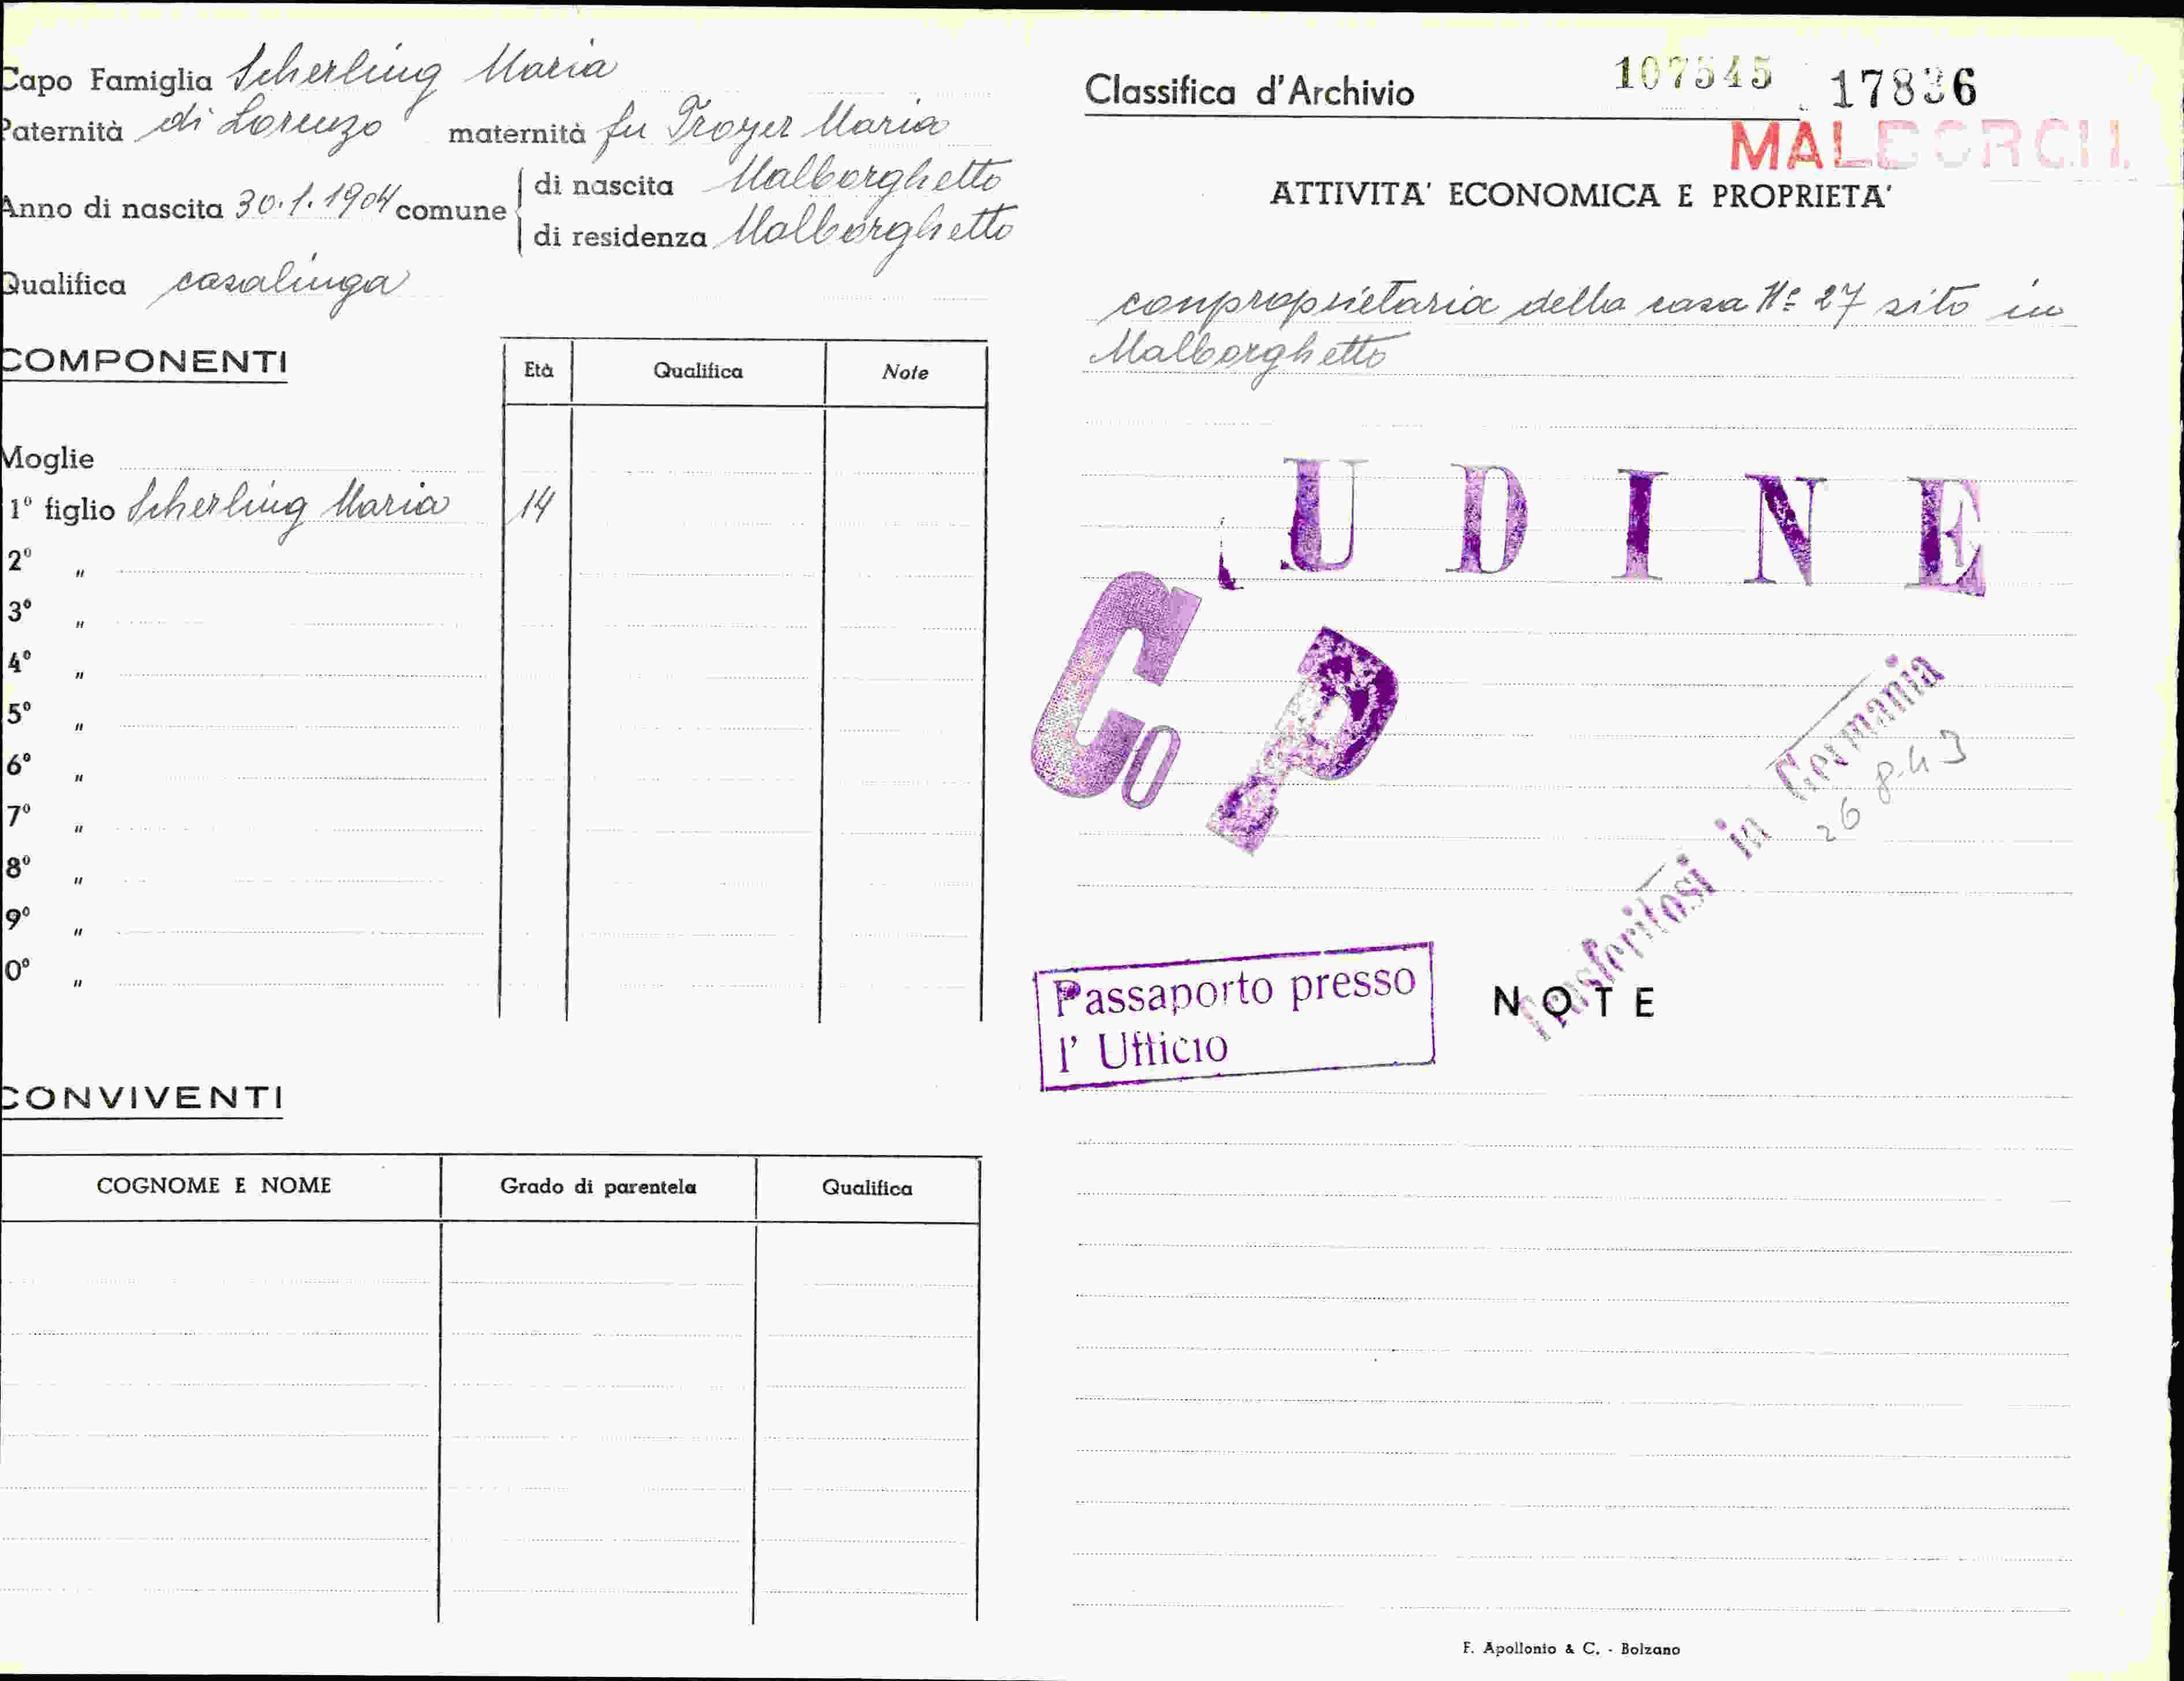 Capo Famiglia Scherling Maria
Paternità di Lorenzo maternità fu Troyer Maria
Anno di nascita 30.1.1904 comune di nascita Malborghetto
di residenza Malborghetto
Qualifica casalinga
COMPONENTI
Età Qualifica Note
Moglie
1º figlio Scherling Maria 14
2º "
3º "
4º "
5º "
6º "
7º "
8º "
9º "
0º "
CONVIVENTI
COGNOME E NOME Grado di parentela Qualifica
Classifica d'Archivio 107545 17836
MALBORGH.
ATTIVITA' ECONOMICA E PROPRIETA'
conproprietaria della casa Nº 27 sito in
Malborghetto
UDINE
Co P
Trasferitosi in Germania
26 8-43
Passaporto presso
l' Ufficio
NOTE
F. Apollonio & C. - Bolzano